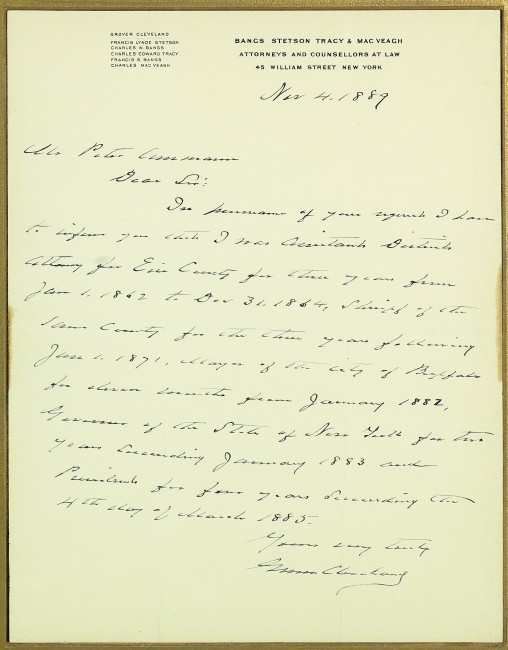 GROVER CLEVELAND
FRANCIS LYNDE STETSON
CHARLES W. BANGS
CHARLES EDWARD TRACY
FRANCIS S. BANGS
CHARLES MACVEAGH
BANGS STETSON TRACY & MACVEAGH
ATTORNEYS AND COUNSELLORS AT LAW
45 WILLIAM STREET NEW YORK
Nov 4. 1889
Mr Peter Ammann
Dear Sir:
In pursuance of your request I have
to inform you that I was Assistant District
Attorney for Erie County for three years from
Jan 1. 1862 to Dec 31. 1864, Sheriff of the
same County for the three years following
Jan 1. 1871, Mayor of the City of Buffalo
for eleven months from January 1882,
Governor of the State of New York for two
years succeeding January 1883 and
President for four years succeeding the
4th day of March 1885.
Yours very truly
Grover Cleveland